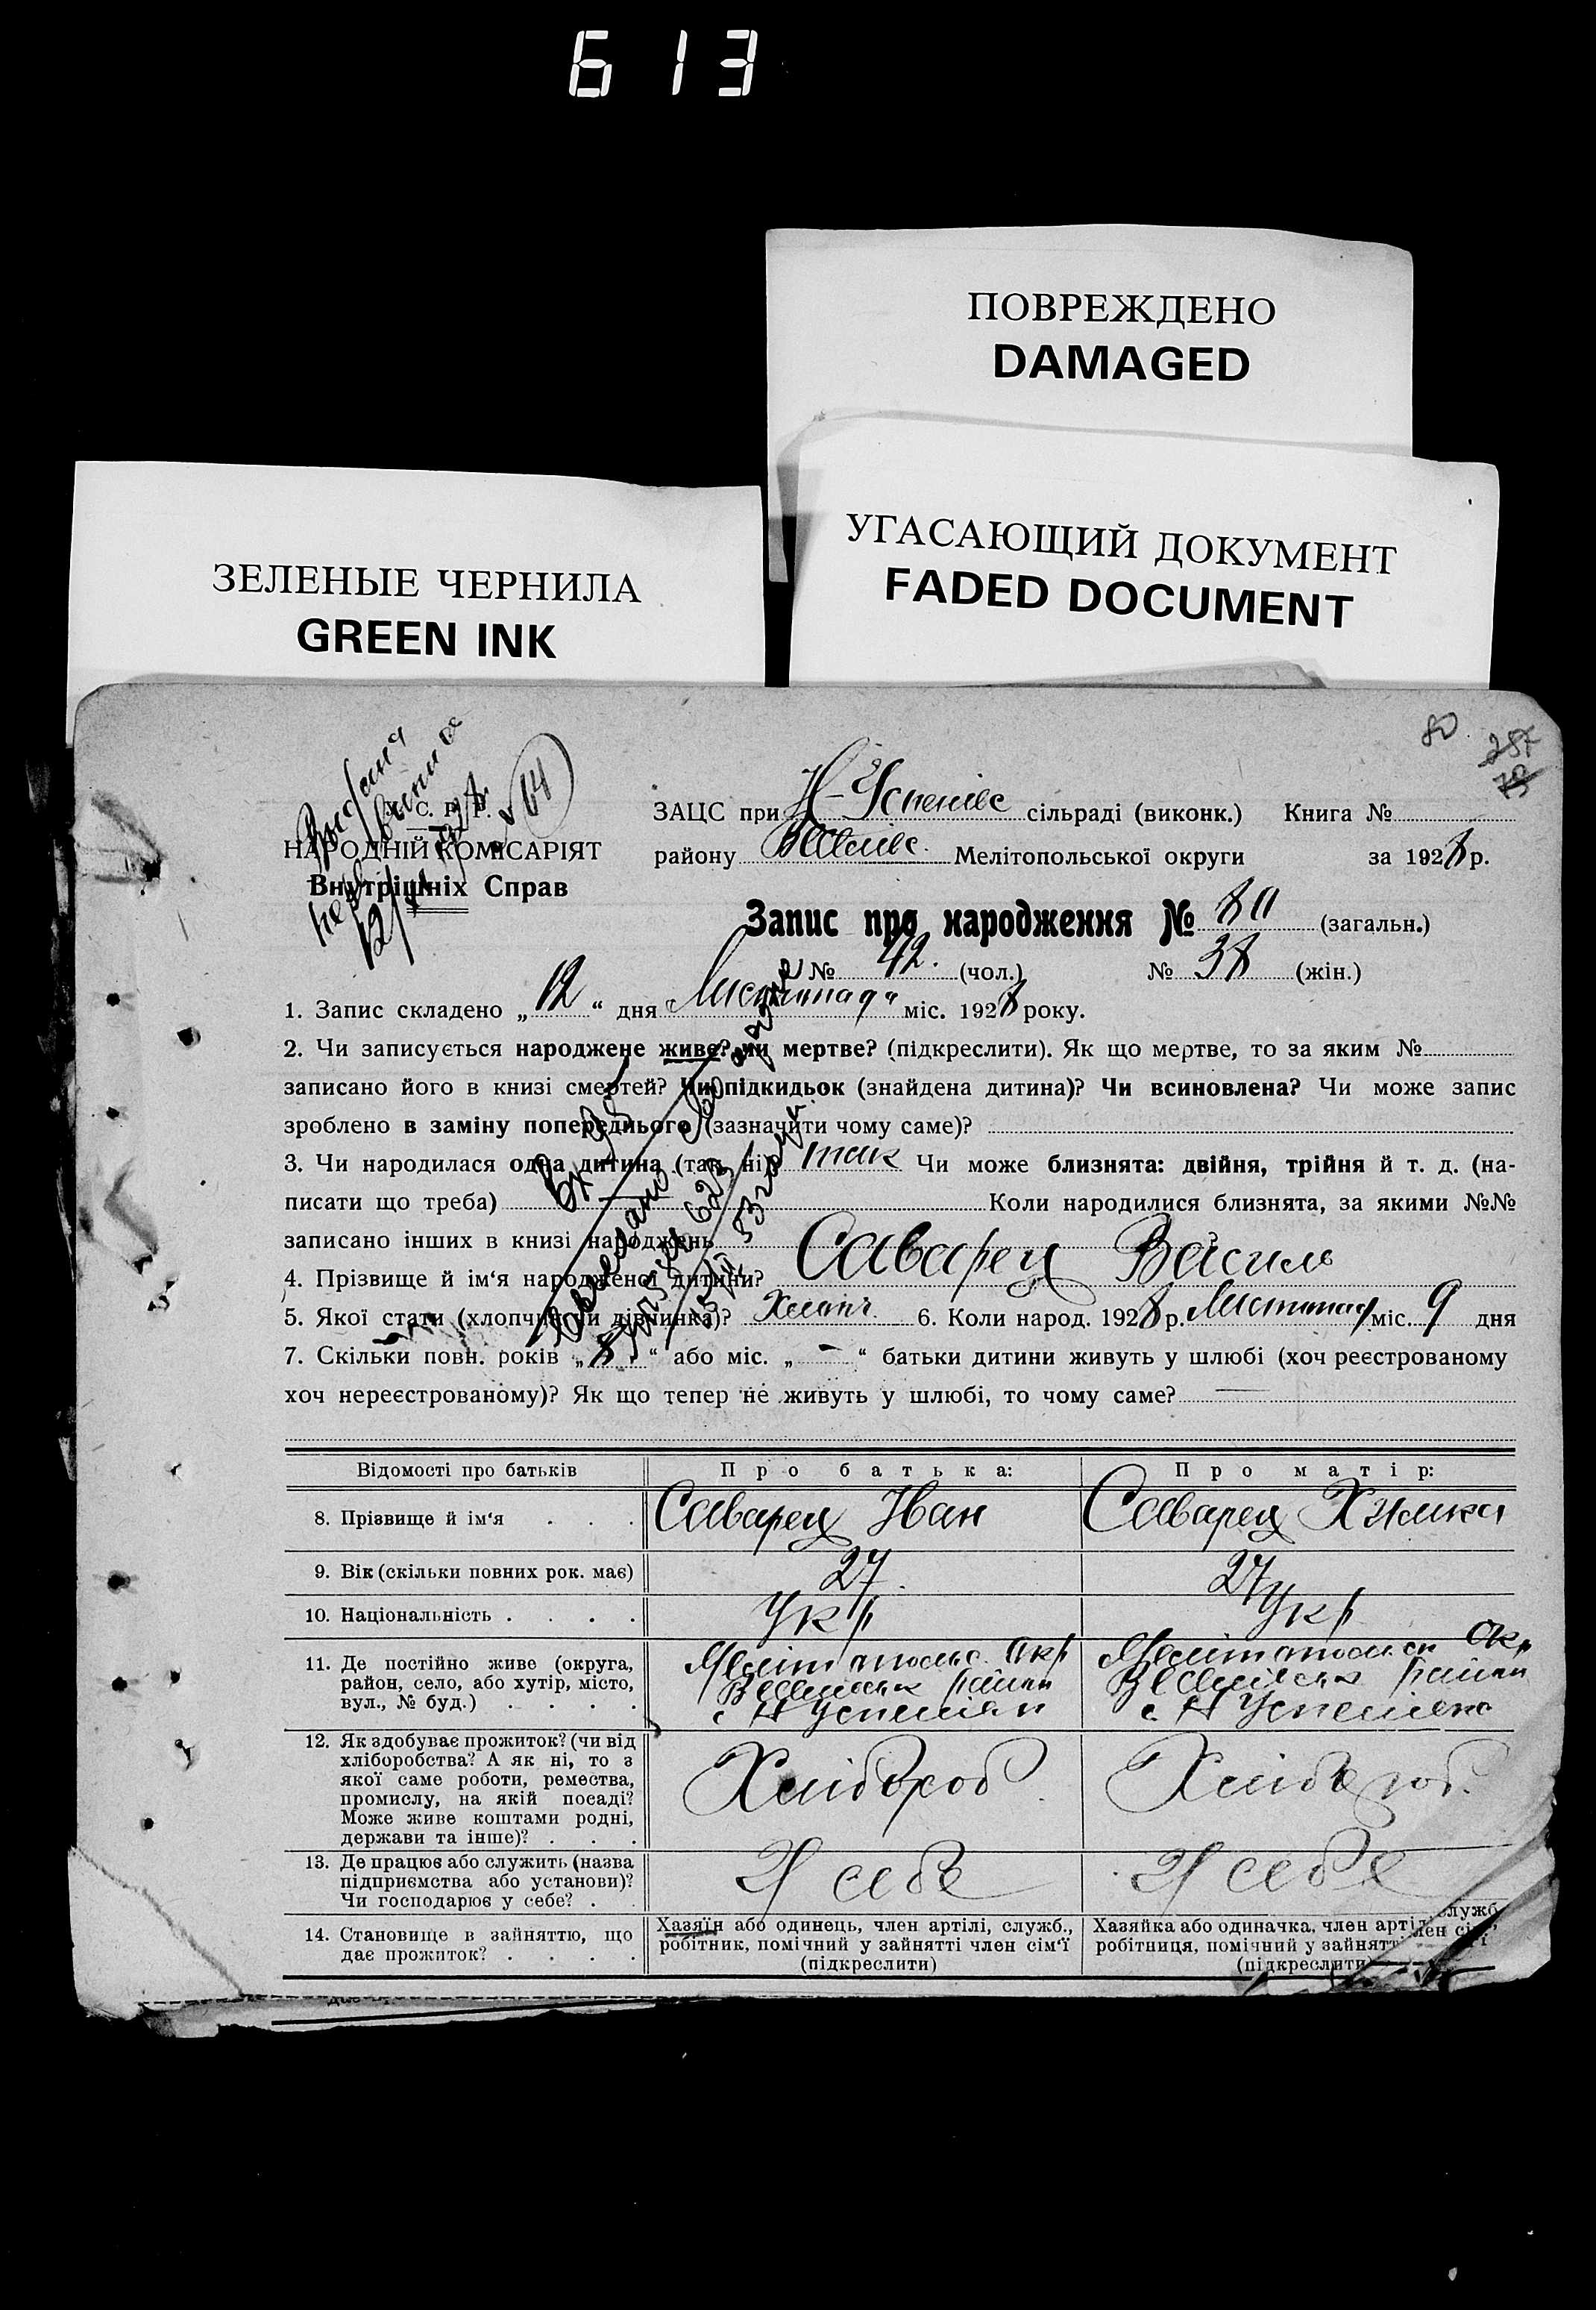 613
ПОВРЕЖДЕНО
DAMAGED
УГАСАЮЩИЙ ДОКУМЕНТ
FADED DOCUMENT
ЗЕЛЕНЫЕ ЧЕРНИЛА
GREEN INK
80
64
НАРОДНІЙ КОМІСАРІЯТ
Внутрішніх Справ
ЗАЦС при Н-Успенівс сільраді (виконк.) Книга №
району Мелітопольської округи за 1928 р.
Запис про народження № 80 (загальн.)
№ 42. (чол.) № 38 (жін.)
1. Запис складено „12“ дня Листопада міс. 1928 року.
2. Чи записується народжене живе? чи мертве? (підкреслити). Як що мертве, то за яким №
записано його в книзі смертей? Чи підкидьок (знайдена дитина)? Чи всиновлена? Чи може запис
зроблено в заміну попереднього (зазначити чому саме)?
3. Чи народилася одна дитина (так, ні)? так Чи може близнята: двійня, трійня й т. д. (на-
писати що треба) Коли народилися близнята, за якими №№
записано інших в книзі народжень ?
4. Прізвище й ім‘я народженої дитини? Саварец Василь
5. Якої стати (хлопчик чи дівчинка)? Хлопч. 6. Коли народ. 1928 р. Листопад міс. 9 дня
7. Скільки повн. років „8“ або міс. „-“ батьки дитини живуть у шлюбі (хоч реєстрованому
хоч нереєстрованому)? Як що тепер не живуть у шлюбі, то чому саме?
Відомості про батьків Про батька: Про матір:
8. Прізвище й ім‘я . . . Саварец Іван Саварец
9. Вік (скільки повних рок. має) 27. 27
10. Національність . . . . Укр Укр
11. Де постійно живе (округа,
район, село, або хутір, місто,
вул., № буд.) . . . .
Окр
район
с. Н Успеніян
Окр
район
с. Н Успеніяно
12. Як здобуває прожиток? (чи від
хліборобства? А як ні, то з
якої саме роботи, ремества,
промислу, на якій посаді?
Може живе коштами родні,
держави та інше)? . . .
Хлібороб. Хлібороб.
13. Де працює або служить (назва
підприємства або установи)?
Чи господарює у себе? .
У себе У себе
14. Становище в зайняттю, що
дає прожиток? . . . .
Хазяїн або одинець, член артілі, служб.,
робітник, помічний у зайнятті член сім‘ї
(підкреслити)
Хазяйка або одиначка, член артілі, служб.
робітниця, помічний у зайнятті член сім‘ї
(підкреслити)